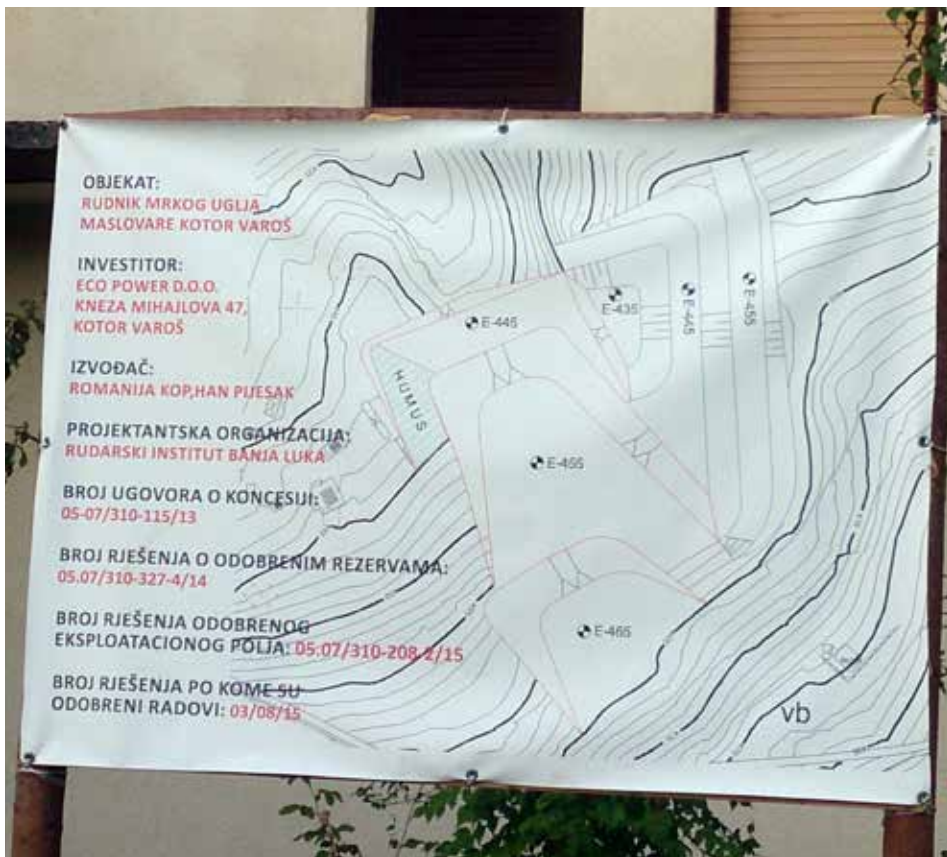 OBJEKAT:
RUDNIK MRKOG UGLJA
MASLOVARE KOTOR VAROŠ
INVESTITOR:
ECO POWER D.O.O.
KNEZA MIHAJLOVA 47,
KOTOR VAROŠ
IZVOĐAČ:
ROMANIJA KOP,HAN PIJESAK
PROJEKTANTSKA ORGANIZACIJA:
RUDARSKI INSTITUT BANJA LUKA
BROJ UGOVORA O KONCESIJI:
05-07/310-115/13
BROJ RJEŠENJA O ODOBRENIM REZERVAMA:
05.07/310-327-4/14
BROJ RJEŠENJA ODOBRENOG
EKSPLOATACIONOG POLJA: 05.07/310-208-2/15
BROJ RJEŠENJA PO KOME SU
ODOBRENI RADOVI: 03/08/15
E-445
E-435
E-445
E-455
HUMUS
E-455
E-465
vb